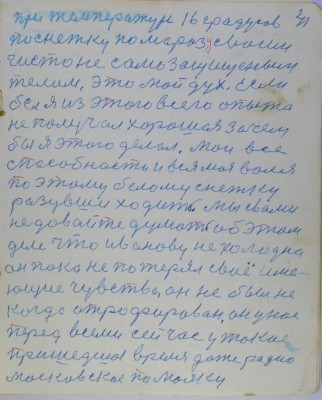 при температуре 16 градусов
по снежку по морозу своим
чисто не само защищеным
телом. Это мой дух. Если
бы я из этого всего опыта
не получал хорошая зачем
бы я этого делал. Мои все
способности и вся моя воля
по этому белому снежку
разувши ходить. Мы с вами
не давайте думать об этом
деле что Иванову не холодна
он пока не потерял своё име-
ющие чувства, он не был не
когда атрофирован, он у нас
перед всеми сейчас у такое
пришедшая время даже радио
московское по маяку